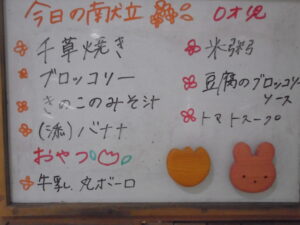 今日の献立
千草焼き
ブロッコリー
きのこのみそ汁
(添)バナナ
おやつ
牛乳、丸ボーロ
0才児
米粥
豆腐のブロッコリー
ソース
トマトスープ